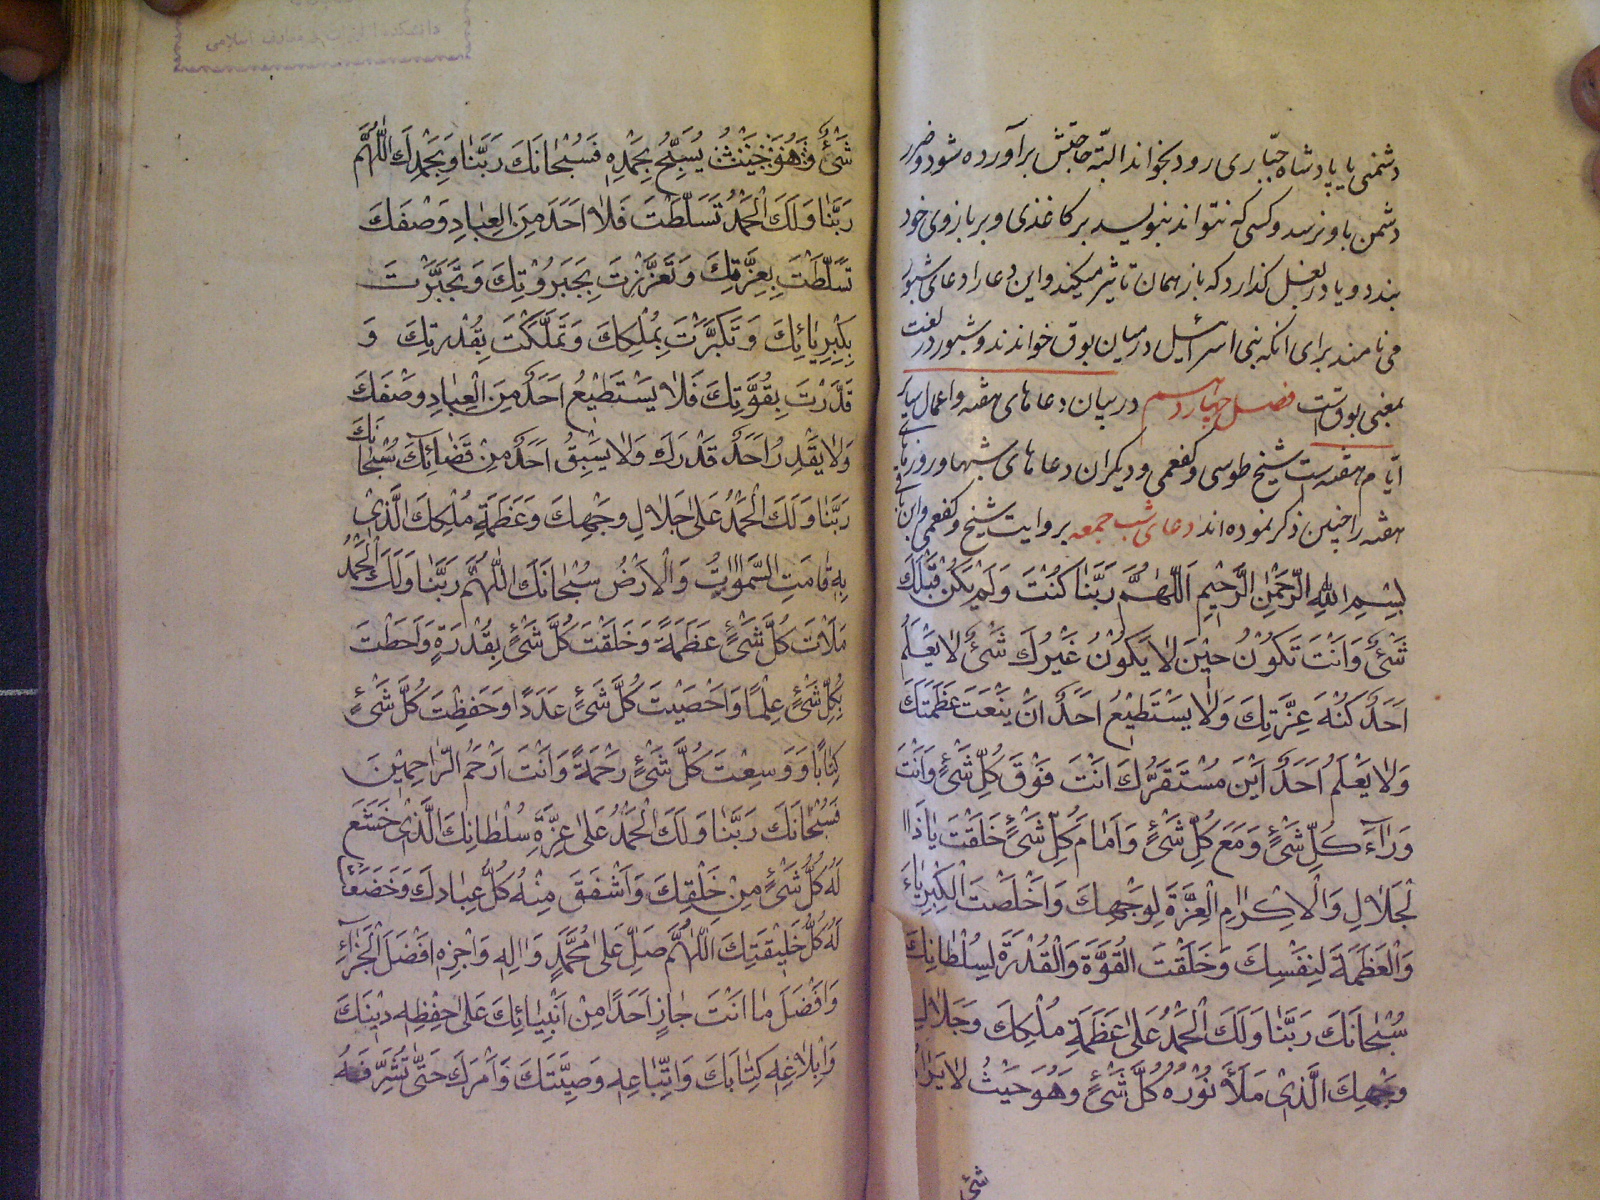 دشمنی یا پادشاه جبّاری رود بخواند البتّه حاجتش برآورده شود و ضرر
دشمن باو نرسد و کسی که نتواند بنویسد بر کاغذی و بر بازوی خود
بندد و یا در بغل گذارد که باز همان تاثیر میکند و این دعا را دعای شبور
می نامند برای انکه بنی اسرائیل در میان بوق خواندند و شبور در لغت
بمعنی بوق است فصل چهاردهم در بیان دعاهای هفته و اعمال سایر
ایّام هفته است شیخ طوسی و کفعمی و دیگران دعاهای شبها و روزهای
هفته را چنین ذکر نموده اند دعای شب جمعه بروایت شیخ و کفعمی و ابن باقی
بِسْمِ اللهِ الرَّحْمٰنِ الرَّحِیْمِ اَللّٰهُمَّ رَبَّنٰا کُنْتَ وَلَمْ یَکُنْ قَبْلَكَ
شَیْءٌ وَاَنْتَ تَکُوْنُ حِیْنَ لاٰ یَکُوْنُ غَیْرُكَ شَیْءٌ لاٰ یَعْلَمُ
اَحَدٌ کُنْهَ عِزَّتِكَ وَلاٰ یَسْتَطِیْعُ اَحَدٌ اَنْ یَنْعَتَ عَظَمَتَكَ
وَلاٰ یَعْلَمُ اَحَدٌ اَیْنَ مُسْتَقَرُّكَ اَنْتَ فَوْقَ کُلِّ شَیْءٍ وَاَنْتَ
وَرٰآءَ کُلِّ شَیْءٍ وَمَعَ کُلِّ شَیْءٍ وَاَمٰامَ کُلِّ شَیْءٍ خَلَقْتَ یٰا ذَا
الْجَلاٰلِ وَالْاِکْرٰامِ الْعِزَّةَ لِوَجْهِكَ وَاَخْلَصْتَ الْکِبْرِیٰاءَ
وَالْعَظَمَةَ لِنَفْسِكَ وَخَلَقْتَ الْقُوَّةَ وَالْقُدْرَةَ لِسُلْطٰانِكَ
سُبْحٰانَكَ رَبَّنٰا وَلَكَ الْحَمْدُ عَلیٰ عَظَمَةِ مُلْکِكَ وَجَلاٰلِ
وَجْهِكَ الَّذِیْ مَلَأَ نُوْرُهُ کُلَّ شَیْءٍ وَهُوَ حَیْثُ لاٰ یَرٰاهُ
شَیْءٌ
شَیْءٌ وَهُوَ یُسَبِّحُ بِحَمْدِهٖ فَسُبْحٰانَكَ رَبَّنٰا وَبِحَمْدِكَ اللّٰهُمَّ
رَبَّنٰا وَلَكَ الْحَمْدُ تَسَلَّطْتَ فَلاٰ اَحَدَ مِنَ الْعِبٰادِ وَصْفَكَ
تَسَلَّطْتَ بِعِزَّتِكَ وَتَعَزَّزْتَ بِجَبَرُوْتِكَ وَتَجَبَّرْتَ
بِکِبْرِیٰائِكَ وَتَکَبَّرْتَ بِمُلْکِكَ وَتَمَلَّکْتَ بِقُدْرَتِكَ وَ
قَدَّرْتَ بِقُوَّتِكَ فَلاٰ یَسْتَطِیْعُ اَحَدٌ مِنَ الْعِبٰادِ وَصْفَكَ
وَلاٰ یَقْدِرُ اَحَدٌ قَدْرَكَ وَلاٰ یَسْبِقُ اَحَدٌ مِنْ قَضٰائِكَ سُبْحٰانَكَ
رَبَّنٰا وَلَكَ الْحَمْدُ عَلیٰ جَلاٰلِ وَجْهِكَ وَعَظَمَةِ مُلْکِكَ الَّذِیْ
بِهٖ قٰامَتِ السَّمٰوٰاتُ وَالْاَرْضُ سُبْحٰانَكَ اللّٰهُمَّ رَبَّنٰا وَلَكَ الْحَمْدُ
مَلَأْتَ کُلَّ شَیْءٍ عَظَمَةً وَخَلَقْتَ کُلَّ شَیْءٍ بِقُدْرَةٍ وَاَحَطْتَ
بِکُلِّ شَیْءٍ عِلْمًا وَاَحْصَیْتَ کُلَّ شَیْءٍ عَدَدًا وَحَفِظْتَ کُلَّ شَیْءٍ
کِتٰابًا وَوَسِعْتَ کُلَّ شَیْءٍ رَحْمَةً وَاَنْتَ اَرْحَمُ الرّٰاحِمِیْنَ
فَسُبْحٰانَكَ رَبَّنٰا وَلَكَ الْحَمْدُ عَلیٰ عِزَّةِ سُلْطٰانِكَ الَّذِیْ خَشَعَ
لَهُ کُلُّ شَیْءٍ مِنْ خَلْقِكَ وَاَشْفَقَ مِنْهُ کُلُّ عِبٰادِكَ وَخَضَعَتْ
لَهُ کُلُّ خَلِیْقَتِكَ اللّٰهُمَّ صَلِّ عَلیٰ مُحَمَّدٍ وَاٰلِهٖ وَاجْزِهٖ اَفْضَلَ الْجَزٰآءِ
وَاَفْضَلَ مٰا اَنْتَ جٰازٍ اَحَدًا مِنْ اَنْبِیٰائِكَ عَلیٰ حِفْظِهٖ دِیْنَكَ
وَاِبْلاٰغِهٖ کِتٰابَكَ وَاتِّبٰاعِهٖ وَصِیَّتَكَ وَاَمْرَكَ حَتّیٰ تُشَرِّفَهُ